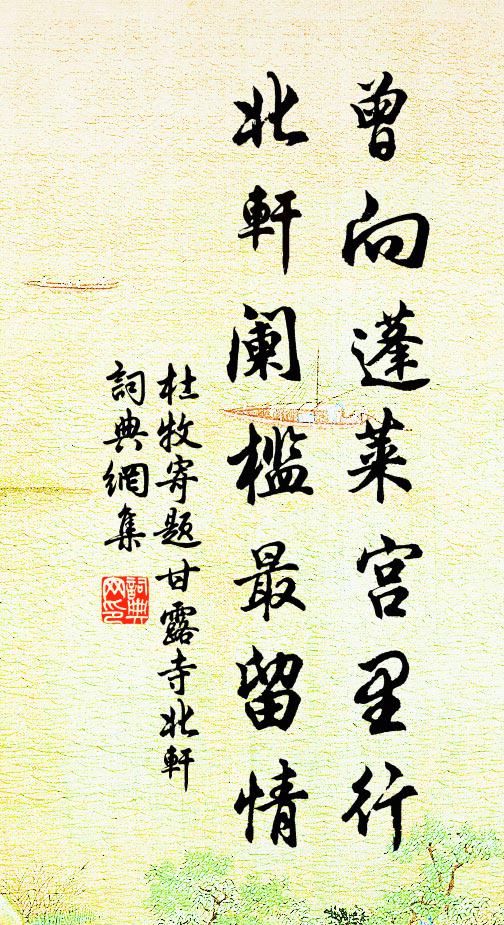 曾向蓬莱宫里行
北軒阑檻最留情
杜牧寄题甘露寺北軒
詞典網集
詞典網印